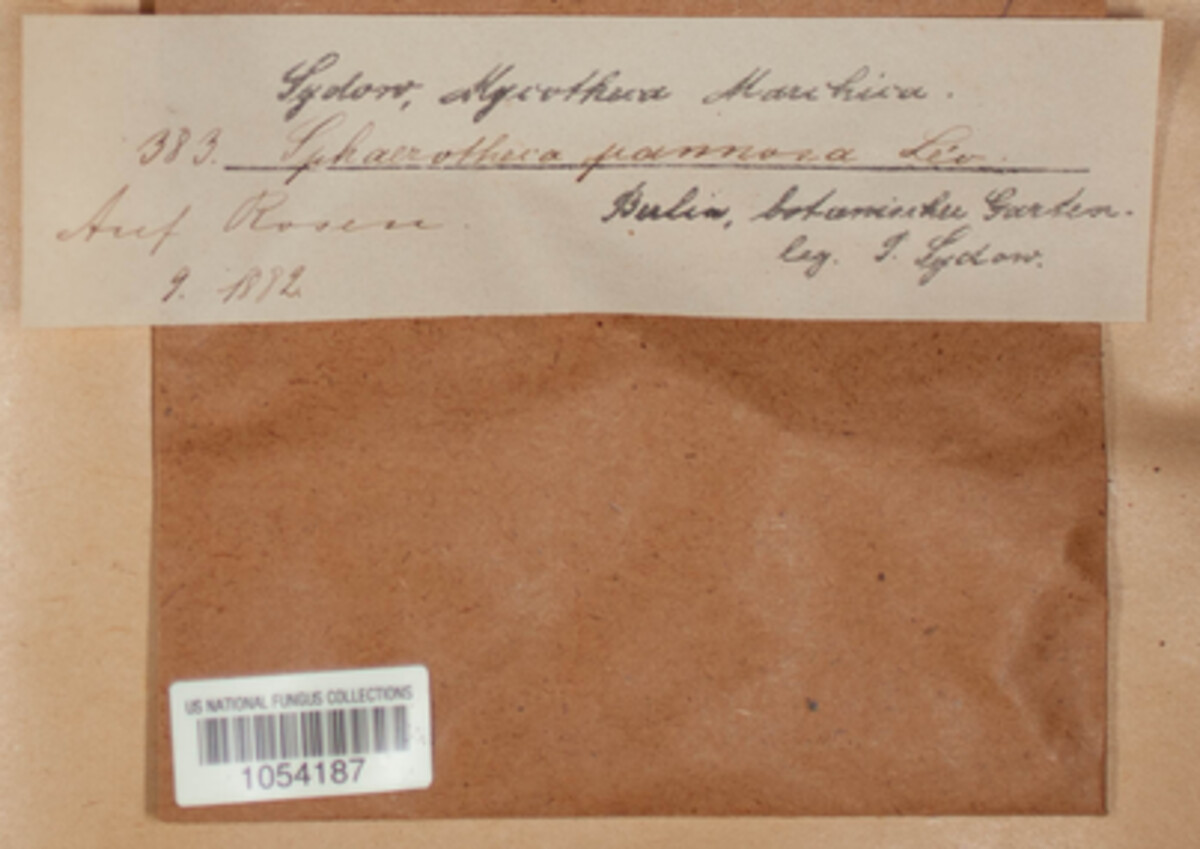 Sydow, Mycotheca Marchica.
383. Sphaerotheca pannosa Lév.
Auf Rosen.
Berlin, botanischer Garten.
leg. P. Sydow.
9. 1882
US NATIONAL FUNGUS COLLECTIONS
1054187